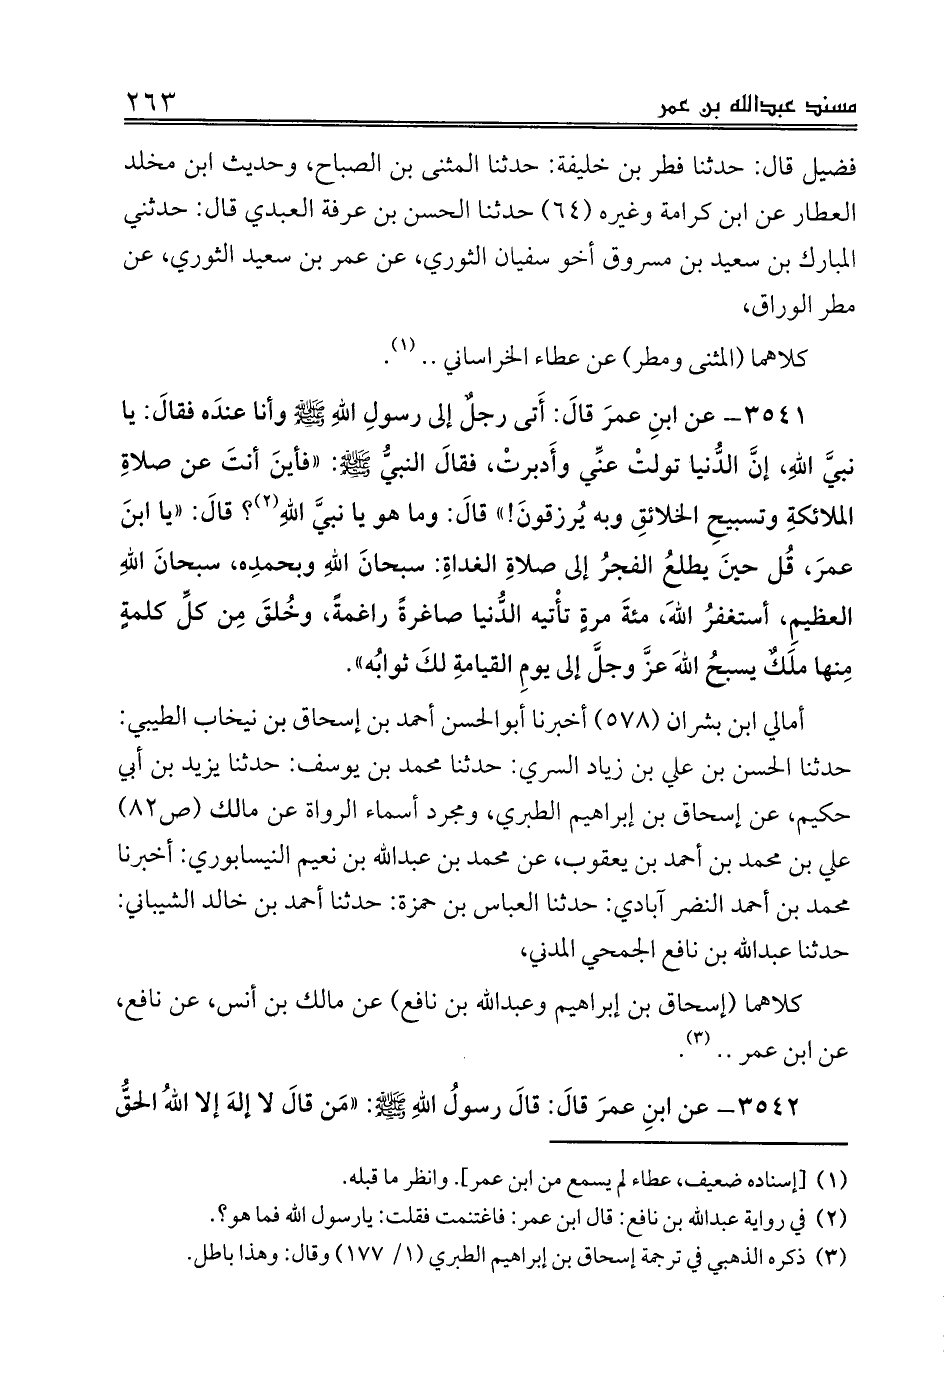 مسند عبدالله بن عمر ٢٦٣
فضيل قال: حدثنا فطر بن خليفة: حدثنا المثنى بن الصباح، وحديث ابن مخلد
العطار عن ابن كرامة وغيره (٦٤) حدثنا الحسن بن عرفة العبدي قال: حدثني
المبارك بن سعيد بن مسروق أخو سفيان الثوري، عن عمر بن سعيد الثوري، عن
مطر الوراق،
كلاهما (المثنى ومطر) عن عطاء الخراساني .. (١).
٣٥٤١ـ عن ابنِ عمرَ قالَ: أَتى رجلٌ إلى رسولِ اللهِ ﷺ وأنا عندَه فقالَ: يا
نبيَّ اللهِ، إنَّ الدُّنيا تولتْ عنِّي وأَدبرتْ، فقالَ النبيُّ ﷺ: «فأينَ أنتَ عن صلاةِ
الملائكةِ وتسبيحِ الخلائقِ وبه يُرزقونَ!» قالَ: وما هو يا نبيَّ اللهِ(٢)؟ قالَ: «يا ابنَ
عمرَ، قُل حينَ يطلعُ الفجرُ إلى صلاةِ الغداةِ: سبحانَ اللهِ وبحمدِه، سبحانَ اللهِ
العظيمِ، أستغفرُ اللهَ، مئةَ مرةٍ تأْتيه الدُّنيا صاغرةً راغمةً، وخُلقَ مِن كلِّ كلمةٍ
مِنها ملَكٌ يسبحُ اللهَ عزَّ وجلَّ إلى يومِ القيامةِ لكَ ثوابُه».
أمالي ابن بشران (٥٧٨) أخبرنا أبوالحسن أحمد بن إسحاق بن نيخاب الطيبي:
حدثنا الحسن بن علي بن زياد السري: حدثنا محمد بن يوسف: حدثنا يزيد بن أبي
حكيم، عن إسحاق بن إبراهيم الطبري، ومجرد أسماء الرواة عن مالك (ص٨٢)
علي بن محمد بن أحمد بن يعقوب، عن محمد بن عبدالله بن نعيم النيسابوري: أخبرنا
محمد بن أحمد النضر آبادي: حدثنا العباس بن حمزة: حدثنا أحمد بن خالد الشيباني:
حدثنا عبدالله بن نافع الجمحي المدني،
كلاهما (إسحاق بن إبراهيم وعبدالله بن نافع) عن مالك بن أنس، عن نافع،
عن ابن عمر .. (٣).
٣٥٤٢ـ عن ابنِ عمرَ قالَ: قالَ رسولُ اللهِ ﷺ: «مَن قالَ لا إلهَ إلا اللهُ الحقُّ
(١) [إسناده ضعيف، عطاء لم يسمع من ابن عمر]. وانظر ما قبله.
(٢) في رواية عبدالله بن نافع: قال ابن عمر: فاغتنمت فقلت: يارسول الله فما هو؟.
(٣) ذكره الذهبي في ترجمة إسحاق بن إبراهيم الطبري (١/ ١٧٧) وقال: وهذا باطل.